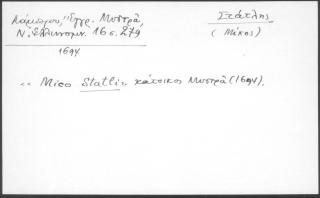 Λάμπρου, Ἔγγρ. Μυστρᾶ,
Ν. Ἑλληνομν. 16 σ. 279
1694.
Στάτλης
(Μίκος)
«Mico Statli» κάτοικος Μυστρᾶ (1694).